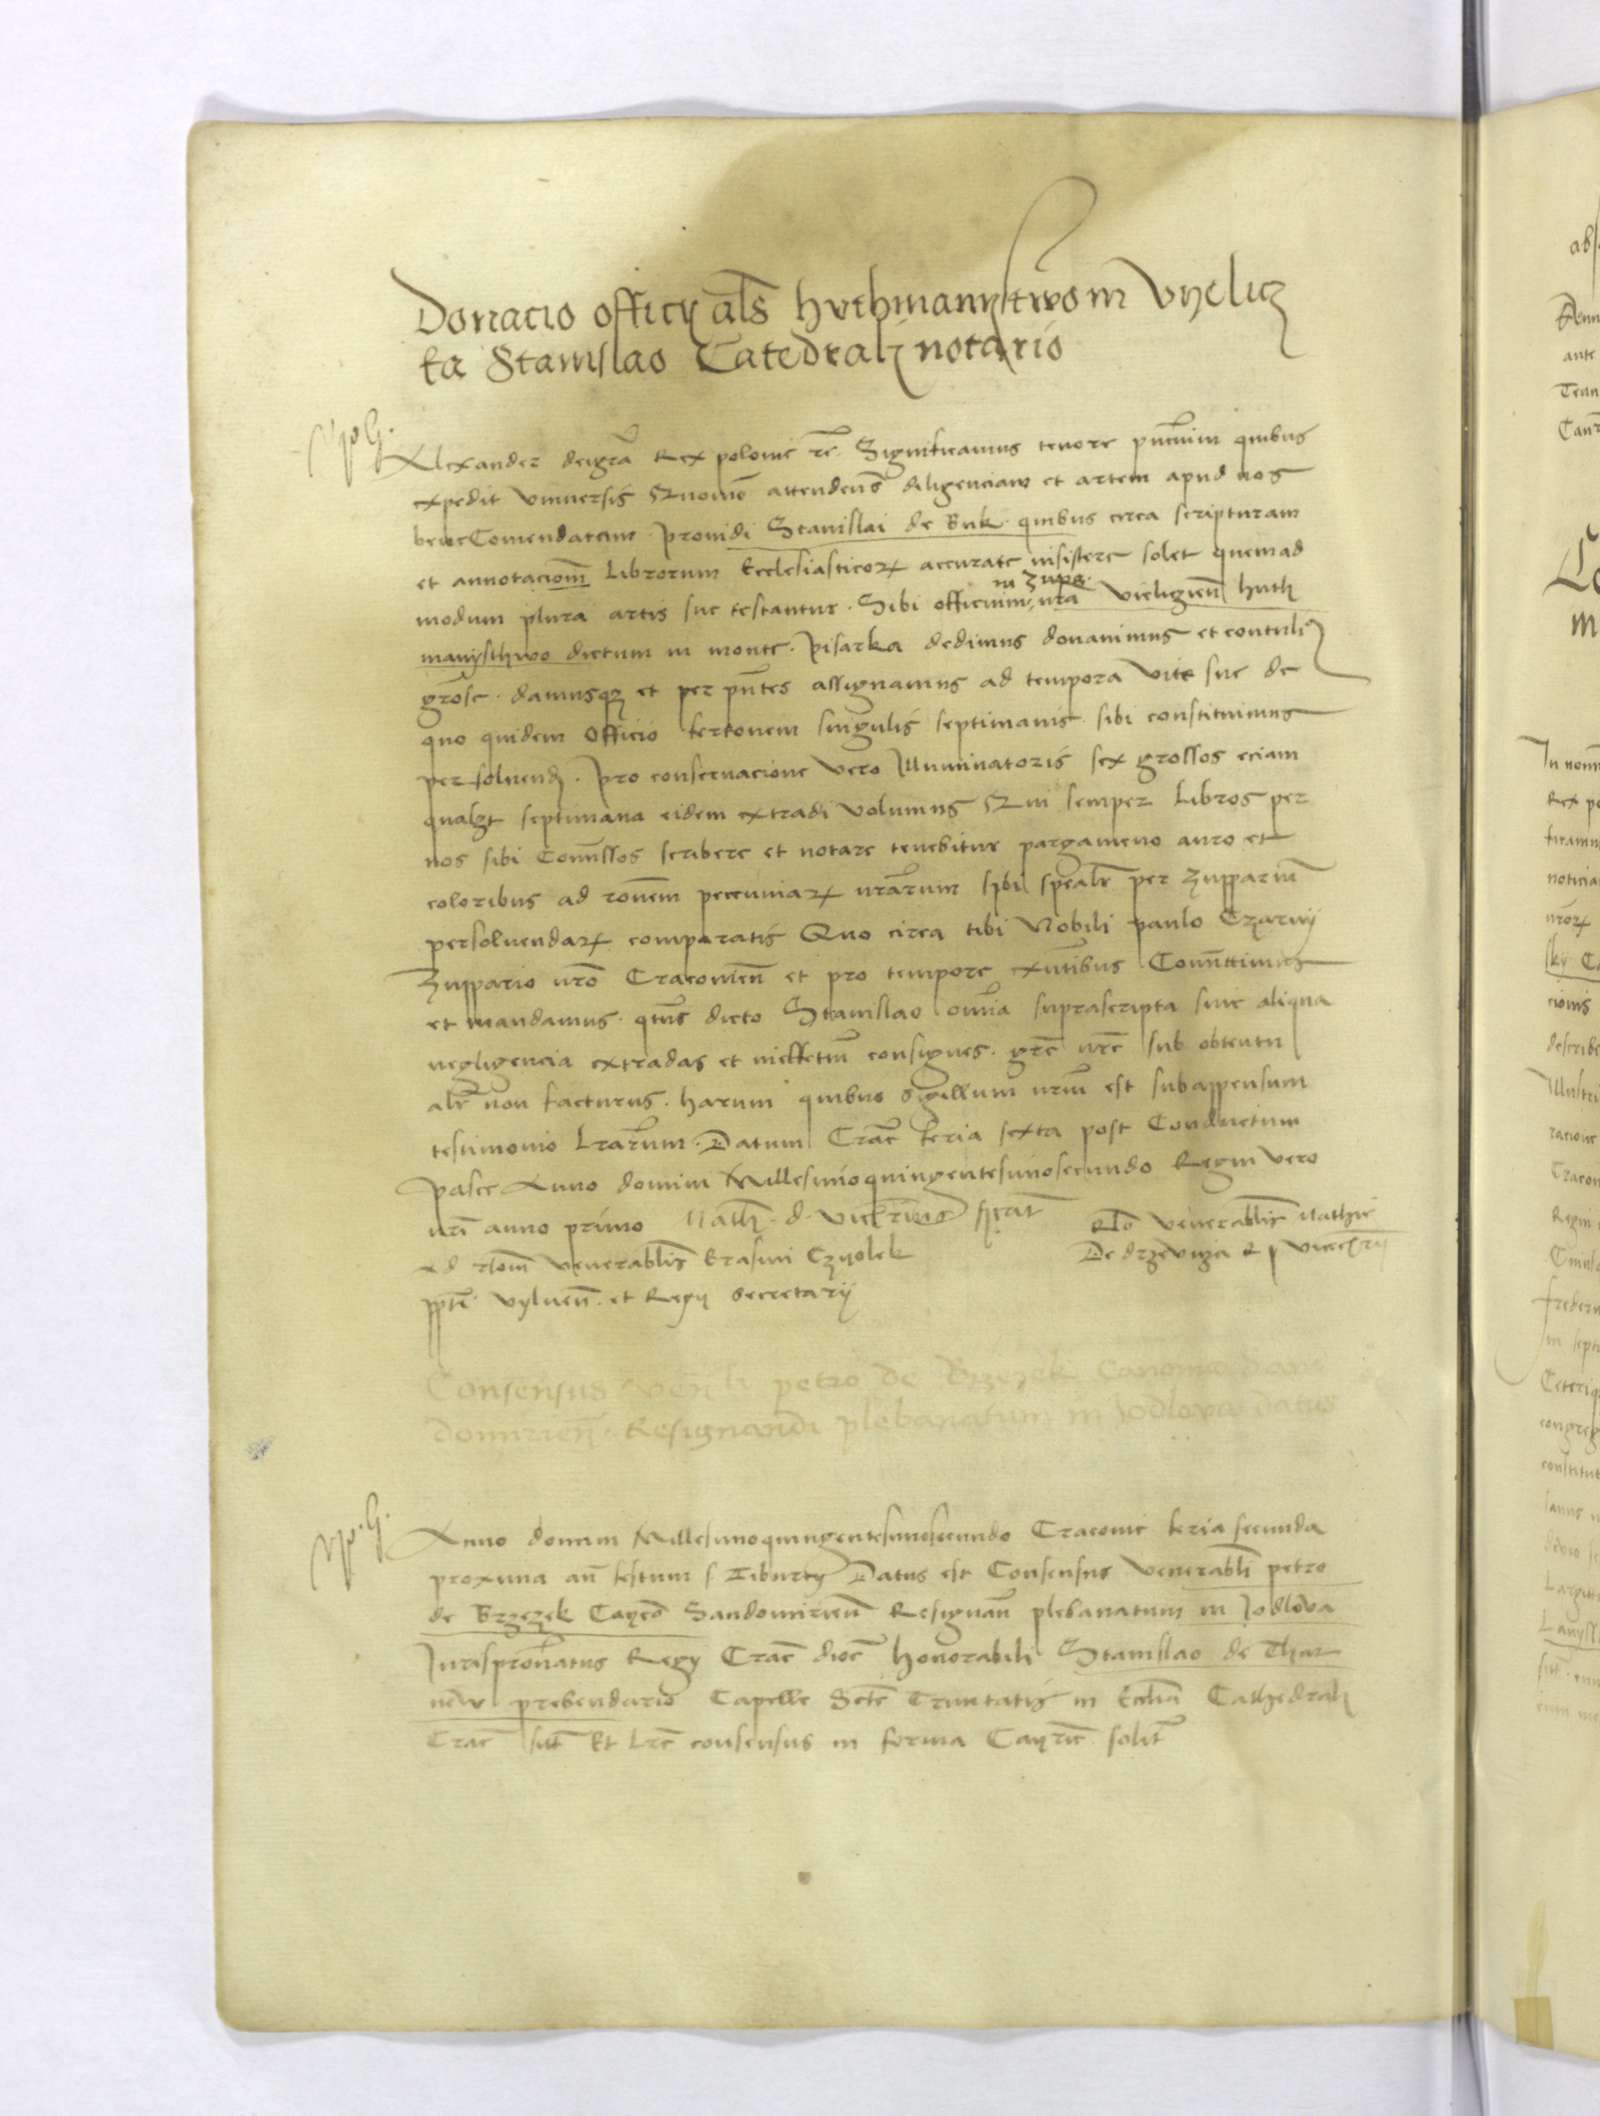 Donacio officij als huthmanystwo in Vyelicz
ka Stanislao Catedrali notario
Alexander dei gra Rex polonie rc Significamus tenore pntium quibus
expedit vniuersis Quomo attendens diligenciam et artem apud nos
bene Comendatam prouidi Stanislai de Buk quibus circa scripturam
et annotaciom Librorum Ecclesiasticor accurate insistere solet quemad
modum plura artis sue testantur Sibi officium nra Vieligien huth
in Zupa
manysthwo dictum in monte Pisarka dedimus donauimus et contuli
damusqz et per pntes assignamus ad tempora vite sue de
quo quidem Officio fertonem singulis septimanis sibi constituimus
persoluend pro conseruacione vero Illuminatoris sex grossos eciam
qualzt septimana eidem extradi volumus Qui semper Libros per
nos sibi Comissos scribere et notare tenebitur pargameno auro et
coloribus ad ronem pecuniar nrarum sibi spealr per Zupparium
persoluendar comparatis Quo circa tibi Nobili paulo Czarny
Zuppario nro Cracouien et pro tempore extntibus Comittimus
et mandamus qtus dicto Stanislao omia suprascripta sine aliqua
negligencia extradas et in effetum consignes gre nre sub obtentu
alr non facturus harum quibus Sigillum nrum est subappensum
testimonio Lrarum Datum Crac feria sexta post Conductum
pasce Anno domini Millesimoquingentesimosecundo Regni vero
nri anno primo
Rlo venerablis Mathie
Ad rlom venerablis Erasmi Czyolek
De drzewicza R p Vicecanrij
ppti vylnen et Regij Secretarij
Consensus venli petro de Brzezek Canonico San
domirien Resignandi plebanatum in Jodlowa datus
Anno domini Millesimoquingentesimosecundo Cracouie feria secunda
proxima an festum s Tiburcij Datus est Consensus venerabli petro
de Brzezek Canco Sandomirien Resignan plebanatum in Jodlowa
Jurispronatus Regij Crac dioc honorabili Stanislao de Thar
now prebendario Capelle Scte Trinitatis in Ecclia Cathedrali
Crac sut Et Lre consensus in forma Canrie solit